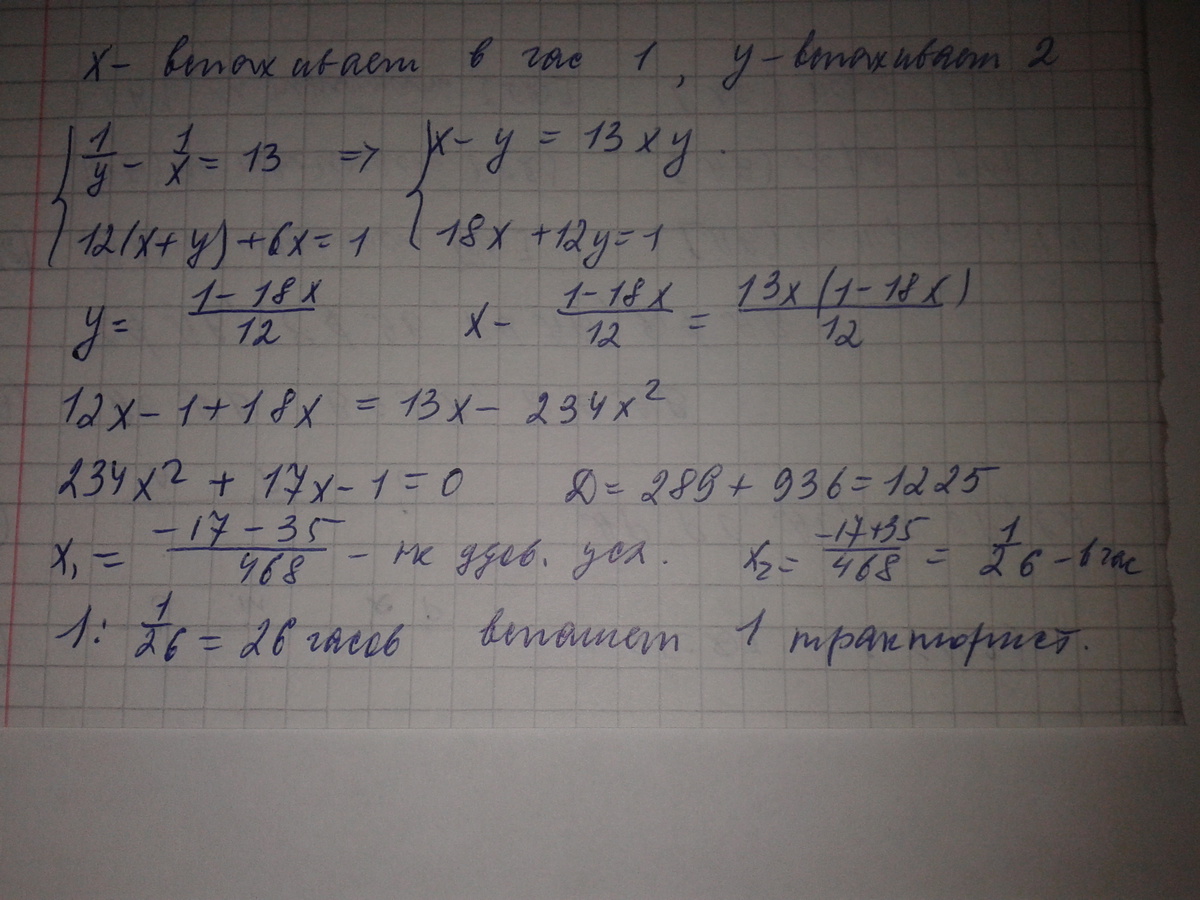 x - вспахивает в час 1, y - вспахивает 2
1/y - 1/x = 13 => x - y = 13xy.
12(x+y)+6x=1 18x+12y=1
y = (1-18x)/12 x - (1-18x)/12 = 13x(1-18x)/12
12x-1+18x = 13x - 234x²
234x² + 17x - 1 = 0 D = 289 + 936 = 1225
x₁ = (-17-35)/468 - не удов. усл. x₂ = (-17+35)/468 = 1/26 - в час
1: 1/26 = 26 часов вспашет 1 тракторист.